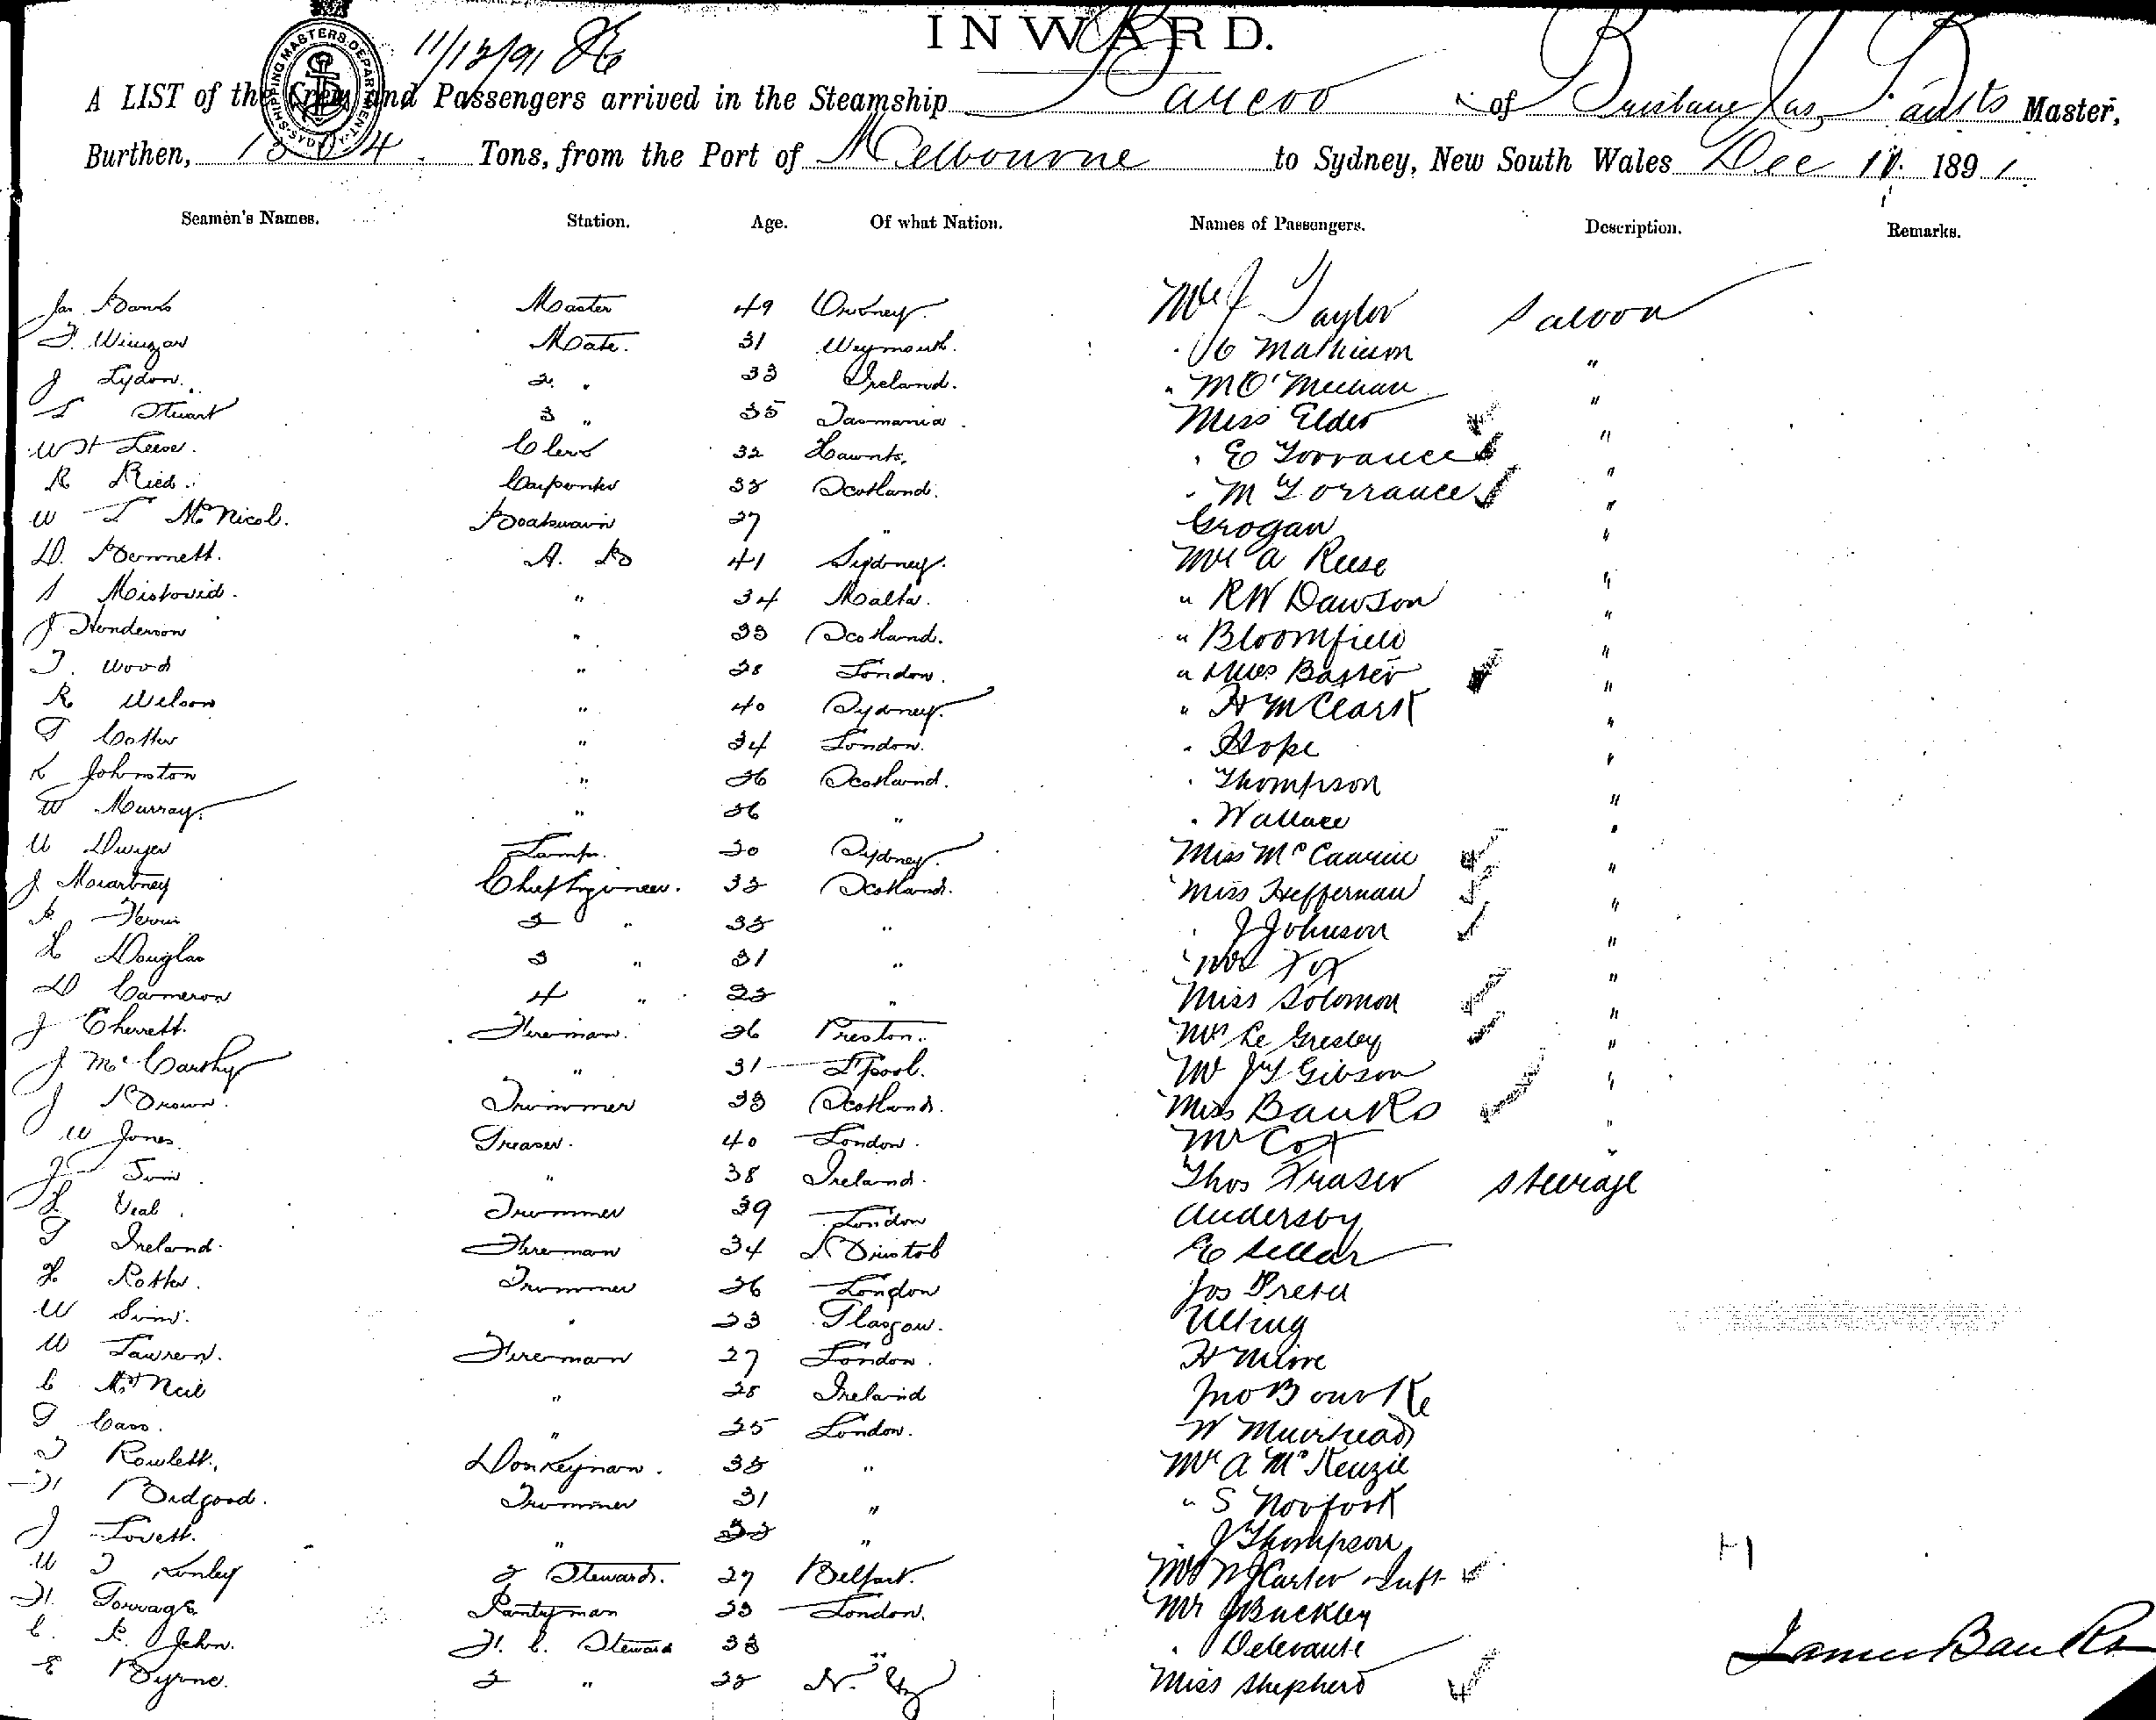 INWARD.
11/12/91
SHIPPING MASTERS DEPARTMENT
A LIST of the Crew and Passengers arrived in the Steamship Barcoo of Brisbane Jas Banks Master,
Burthen, Tons, from the Port of Melbourne to Sydney, New South Wales Dec 189 1
Seamen's Names. Station. Age. Of what Nation. Names of Passengers. Description. Remarks.
Jas Banks Master 49 Orkney. Mr J Taylor Saloon
Mate. 31 Weymouth. "
J Lydon. 2. " 33 Ireland. " M O'Meehan "
Stuart 3 " 35 Tasmania. Miss Elder "
W H Leese. Clerk 32 Hawnts. " E Torrance "
R Ried. Carpenter 35 Scotland. " M Torrance "
W McNicol. Boatswain 27 " Grogan "
D. Bennett. A. B 41 Sydney. Mr A Reese "
" 34 Malta. " R W Dawson "
J Henderson " 33 Scotland. " Bloomfield "
T. Wood " 28 London. "
R Wilson " 40 Sydney. " H M Clark "
T Cotter " 34 London. " Hope "
K Johnston " 26 Scotland. " Thompson "
W Murray. " 26 " " Wallace "
U Dwyer Lamp. 20 Sydney. Miss "
J. Macartney Chief Engineer. 35 Scotland. Miss Heffernan "
2 " 35 " " J Johnson "
Douglas 3 " 31 " Mr Fox "
D Cameron 4 " 25 " Miss Solomon "
J Cherrett. Fireman. 26 Preston. Le Gresley "
J McCarthy " 31 L'pool. Mr Gibson "
J Brown. Trimmer 33 Scotland. Miss Banks "
W Jones. Greaser. 40 London. Mr Cox "
J " 38 Ireland. Thos Fraser Steerage
Veal Trimmer 39 London
T Ireland. Fireman 34 Bristol E Sellar
Trimmer 26 London
W Sim. " 23 Glasgow. Utting
W Lawren. Fireman 27 London. H Milne
C McNeil " 28 Ireland Jno Bourke
T Cass. " 25 London. W Muirhead
T Rowlett. Donkeyman. 35 " Mr A McKenzie
H Bidgood. Trimmer 31 " " S Norfork
J Lovett. " " J Thompson
2 Steward. 27 Belfast. Carter
H. Pantryman 23 London. Mr J Buckley
C. John. F. C. Steward 33 "
E Byrne. 2 " 28 Miss Shepherd
James Banks